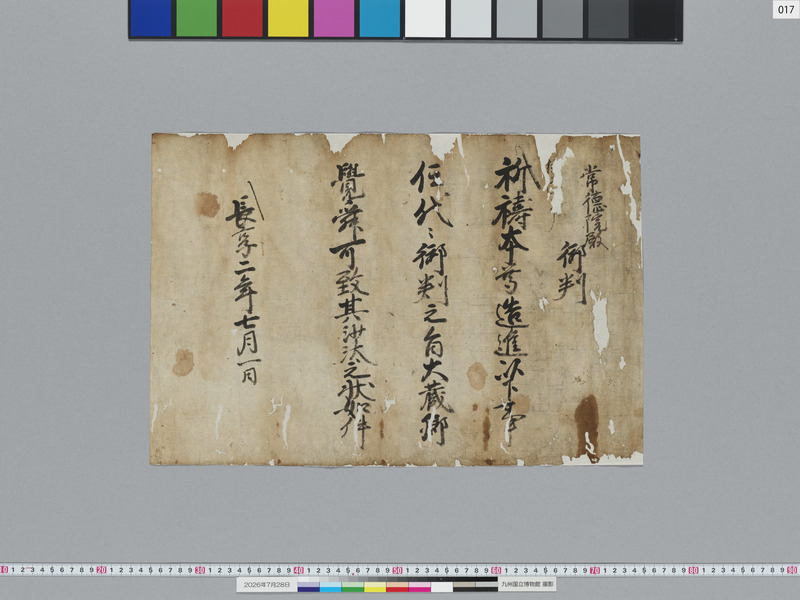 常徳院殿
御判
祈祷本尊造進以下事
任代々御判之旨大蔵卿
覺舜可致其沙汰之状如件
長享二年七月一日
017
2026年7月28日
九州国立博物館 撮影